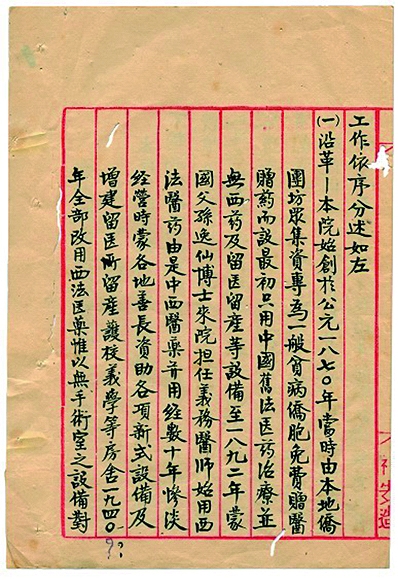 工作依序分述如左
㈠沿革－本院始創於公元一八七〇年當時由本地僑
團坊眾集資專為一般貧病僑胞免費贈醫
贈葯而設最初只用中國舊法医葯治療並
無西葯及留医留產等設備至一八九二年蒙
國父孫逸仙博士來院担任義務醫師始用西
法醫葯由是中西醫藥并用經數十年慘淡
經營時蒙各地善長資助各項新式設備及
增建留医所留產護校義學等房舍一九四〇
年全部改用西法医藥惟以無手術室之設備對
??